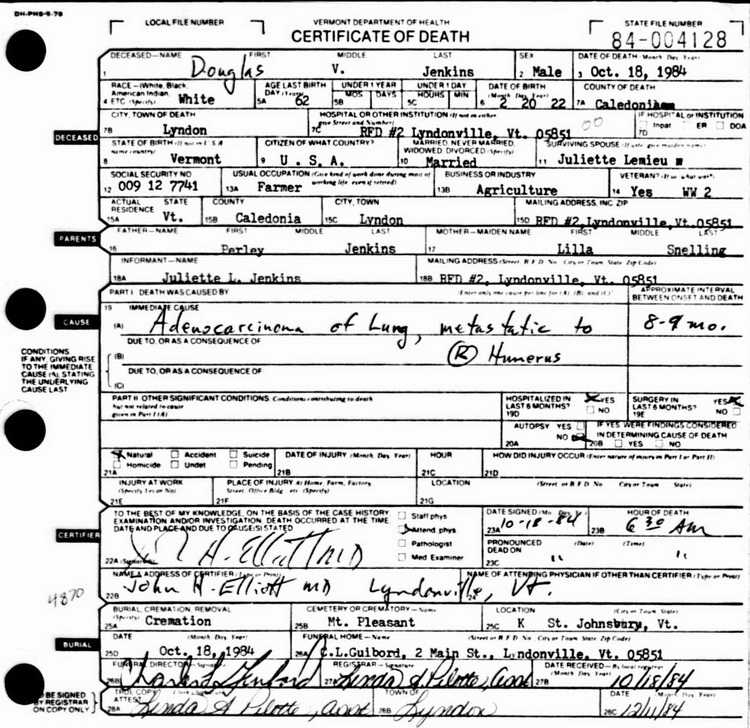 DH-PHS-9-78
LOCAL FILE NUMBER
VERMONT DEPARTMENT OF HEALTH
STATE FILE NUMBER
CERTIFICATE OF DEATH
84-004128
DECEASED—NAME FIRST MIDDLE LAST SEX DATE OF DEATH (Month Day, Year)
1 Douglas V. Jenkins 2 Male 3 Oct. 18, 1984
RACE—(White, Black, American Indian, ETC. (Specify) AGE LAST BIRTH DAY (Years) UNDER 1 YEAR UNDER 1 DAY DATE OF BIRTH (Month, Day, Year) COUNTY OF DEATH
MOS DAYS HOURS MIN
4 White 5A 62 5B 5C 6 2 20 22 7A Caledonia
CITY, TOWN OF DEATH HOSPITAL OR OTHER INSTITUTION (If not in either give Street and Number) IF HOSPITAL or INSTITUTION
Inpat ER DOA
7B Lyndon 7C RFD #2 Lyndonville, Vt. 05851 00 7D
DECEASED
STATE OF BIRTH (If not in U.S.A. name country) CITIZEN OF WHAT COUNTRY? MARRIED, NEVER MARRIED, WIDOWED, DIVORCED (Specify) SURVIVING SPOUSE (If wife, give maiden name)
8 Vermont 9 U.S.A. 10 Married 11 Juliette Lemieu
SOCIAL SECURITY NO USUAL OCCUPATION (Give kind of work done during most of working life, even if retired) BUSINESS OR INDUSTRY VETERAN? (If so, what war?)
12 009 12 7741 13A Farmer 13B Agriculture 14 Yes WW 2
ACTUAL RESIDENCE STATE COUNTY CITY, TOWN MAILING ADDRESS, INC ZIP
15A Vt. 15B Caledonia 15C Lyndon 15D RFD #2, Lyndonville, Vt. 05851
PARENTS
FATHER—NAME FIRST MIDDLE LAST MOTHER—MAIDEN NAME FIRST MIDDLE LAST
16 Perley Jenkins 17 Lilla Snelling
INFORMANT—NAME MAILING ADDRESS (Street or R.F.D. No. City or Town State Zip Code)
18A Juliette L. Jenkins 18B RFD #2, Lyndonville, Vt. 05851
PART I. DEATH WAS CAUSED BY (Enter only one cause per line for (A), (B), and (C)) APPROXIMATE INTERVAL BETWEEN ONSET AND DEATH
19 IMMEDIATE CAUSE
CAUSE
(A) Adenocarcinoma of Lung, metastatic to 8-9 mo.
DUE TO, OR AS A CONSEQUENCE OF
(B) (R) Humerus
DUE TO, OR AS A CONSEQUENCE OF
(C)
CONDITIONS IF ANY, GIVING RISE TO THE IMMEDIATE CAUSE (A), STATING THE UNDERLYING CAUSE LAST
PART II. OTHER SIGNIFICANT CONDITIONS: Conditions contributing to death but not related to cause given in Part I (A)
HOSPITALIZED IN LAST 6 MONTHS? 19D YES NO
SURGERY IN LAST 6 MONTHS? 19E YES NO
AUTOPSY YES NO 20A
IF YES WERE FINDINGS CONSIDERED IN DETERMINING CAUSE OF DEATH 20B YES NO
Natural Accident Suicide DATE OF INJURY (Month, Day, Year) HOUR HOW DID INJURY OCCUR (Enter nature of injury in Part I or Part II)
Homicide Undet Pending
21A 21B 21C 21D
INJURY AT WORK (Specify Yes or No) PLACE OF INJURY At Home, Farm, Factory, Street, Office Bldg. etc. (Specify) LOCATION (Street or R.F.D. No. City or Town State)
21E 21F 21G
CERTIFIER
TO THE BEST OF MY KNOWLEDGE, ON THE BASIS OF THE CASE HISTORY EXAMINATION AND/OR INVESTIGATION, DEATH OCCURRED AT THE TIME DATE AND PLACE AND DUE TO CAUSE(S) STATED
Staff phys
Attend phys
Pathologist
Med Examiner
DATE SIGNED (Mo. Day, Yr.) HOUR OF DEATH
23A 10-18-84 23B 6 30 AM
PRONOUNCED DEAD ON (Date) (Time)
23C " "
22A J H. Elliott MD
NAME & ADDRESS OF CERTIFIER (Type or Print) NAME OF ATTENDING PHYSICIAN IF OTHER THAN CERTIFIER (Type or Print)
22B John H. Elliott MD Lyndonville, Vt. 24
4870
BURIAL, CREMATION, REMOVAL CEMETERY OR CREMATORY—Name LOCATION (City or Town, State)
25A Cremation 25B Mt. Pleasant 25C St. Johnsbury, Vt.
BURIAL
DATE (Month, Day, Year) FUNERAL HOME—Name (Street or R.F.D. No. City or Town, State Zip Code)
25D Oct. 18, 1984 26A C.L.Guibord, 2 Main St., Lyndonville, Vt. 05851
FUNERAL DIRECTOR—Signature REGISTRAR—Signature DATE RECEIVED—By local registrar
26B Charles L. Guibord 27A Linda A Pilotte, Asst 27B 10/18/84
TO BE SIGNED BY REGISTRAR ON COPY ONLY
TRUE COPY ATTEST TOWN OF DATE
28A Linda A Pilotte, Asst 28B Lyndon 28C 12/11/84